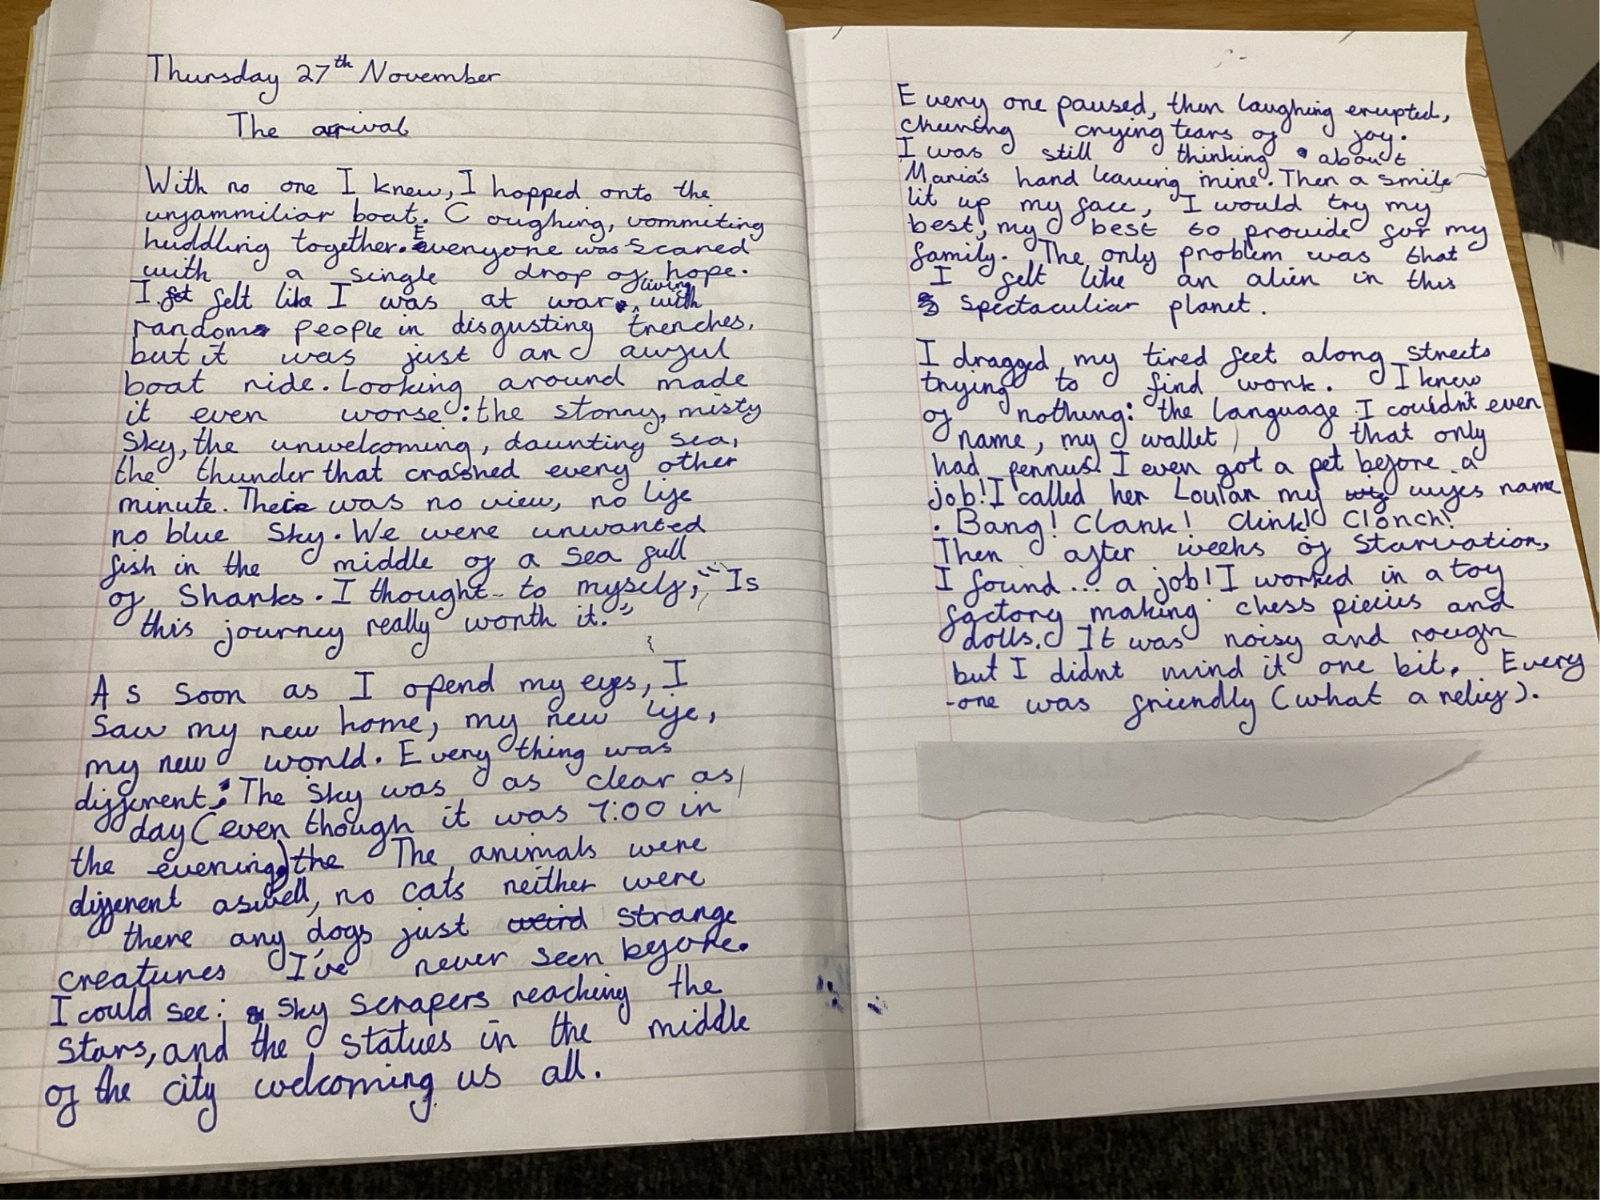 Thursday 27th November
The arrival
With no one I knew, I hopped onto the
unfammiliar boat. Coughing, vommiting
huddling together. Everyone was scared
with a single drop of hope.
I felt like I was at war, living with
random people in disgusting trenches,
but it was just an awful
boat ride. Looking around made
it even worse: the stormy, misty
sky, the unwelcoming, daunting sea,
the thunder that crashed every other
minute. There was no view, no life
no blue sky. We were unwanted
fish in the middle of a sea full
of sharks. I thought to myself, "Is
this journey really worth it."
As soon as I opend my eyes, I
saw my new home, my new life,
my new world. Every thing was
different: The sky was as clear as
day (even though it was 7:00 in
the evening) the The animals were
different aswell, no cats neither were
there any dogs just weird strange
creatures I've never seen before.
I could see: sky scrapers reaching the
stars, and the statues in the middle
of the city welcoming us all.
Every one paused, then laughing erupted,
cheering crying tears of joy.
I was still thinking about
Maria's hand leaving mine. Then a smile
lit up my face, I would try my
best, my best to provide for my
family. The only problem was that
I felt like an alien in this
spectaculiar planet.
I dragged my tired feet along streets
trying to find work. I knew
of nothing: the language I couldn't even
name, my wallet that only
had pennus. I even got a pet before a
job! I called her Loulan my wifes name
. Bang! Clank! Clink! Clonch!
Then after weeks of starvation,
I found... a job! I worked in a toy
factory making chess piecies and
dolls. It was noisy and rough
but I didnt mind it one bit. Every
-one was friendly (what a relief).